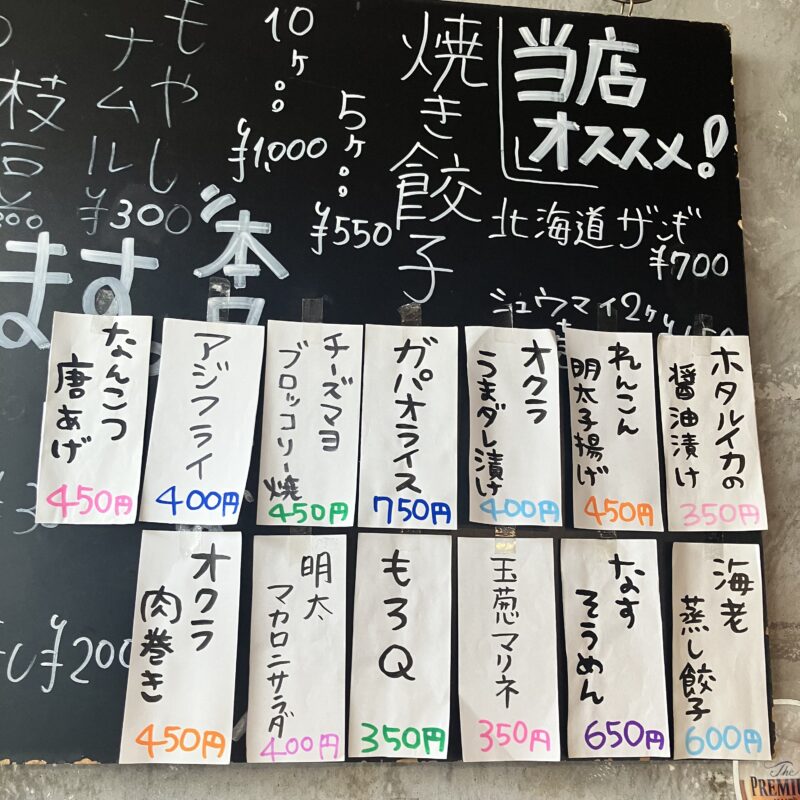 当店
オススメ!
北海道ザンギ
¥700
シュウマイ2ケ
焼き餃子
5ケ。。
¥550
10ケ。。
¥1,000
もやし
ナムル
¥300
ます。
ホタルイカの
醤油漬け
350円
れんこん
明太子揚げ
450円
オクラ
うまダレ漬け
400円
ガパオライス
750円
チーズマヨ
ブロッコリー焼
450円
アジフライ
400円
なんこつ
唐あげ
450円
海老
蒸し餃子
600円
なす
そうめん
650円
玉葱マリネ
350円
もろQ
350円
明太
マカロニサラダ
400円
オクラ
肉巻き
450円
¥200
The
PREMIUM